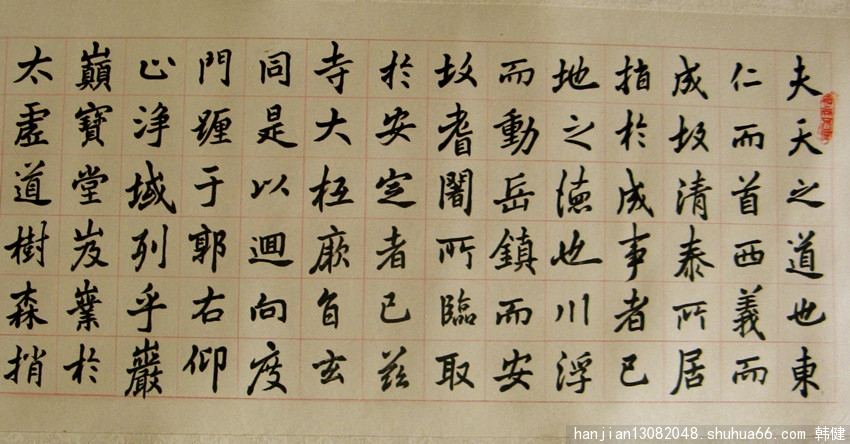 夫天之道也東
仁而首西義而
成故清泰所居
指於成事者已
地之德也川浮
而動岳鎮而安
故耆闍所臨取
於安定者已茲
寺大抵厥自玄
同是以迴向度
門躔于郭右仰
止淨域列乎巖
巔寶堂岌嶪於
太虛道樹森捎
hanjian13082048.shuhua66.com 韩健